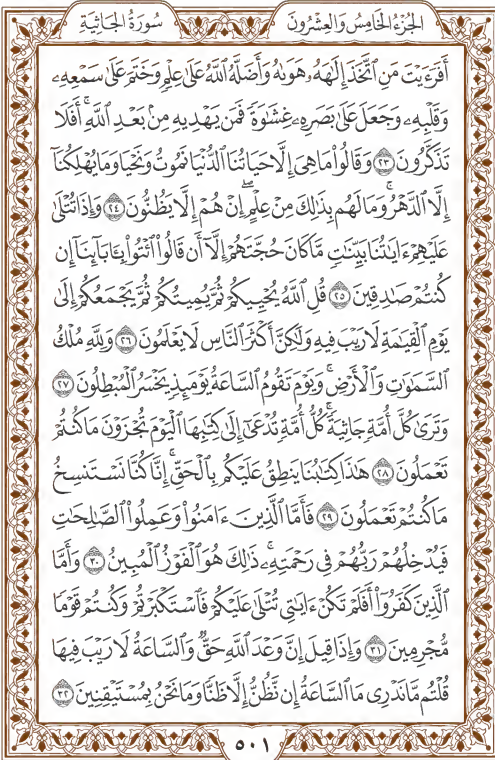 الجُزْءُ الخَامِسُ وَالعِشْرُونَ سُورَةُ الجَاثِيَةِ
أَفَرَءَيْتَ مَنِ ٱتَّخَذَ إِلَٰهَهُۥ هَوَىٰهُ وَأَضَلَّهُ ٱللَّهُ عَلَىٰ عِلْمٍ وَخَتَمَ عَلَىٰ سَمْعِهِۦ
وَقَلْبِهِۦ وَجَعَلَ عَلَىٰ بَصَرِهِۦ غِشَٰوَةً فَمَن يَهْدِيهِ مِنۢ بَعْدِ ٱللَّهِۚ أَفَلَا
تَذَكَّرُونَ ٢٣ وَقَالُوا۟ مَا هِىَ إِلَّا حَيَاتُنَا ٱلدُّنْيَا نَمُوتُ وَنَحْيَا وَمَا يُهْلِكُنَآ
إِلَّا ٱلدَّهْرُۚ وَمَا لَهُم بِذَٰلِكَ مِنْ عِلْمٍۖ إِنْ هُمْ إِلَّا يَظُنُّونَ ٢٤ وَإِذَا تُتْلَىٰ
عَلَيْهِمْ ءَايَٰتُنَا بَيِّنَٰتٍ مَّا كَانَ حُجَّتَهُمْ إِلَّآ أَن قَالُوا۟ ٱئْتُوا۟ بِـَٔابَآئِنَآ إِن
كُنتُمْ صَٰدِقِينَ ٢٥ قُلِ ٱللَّهُ يُحْيِيكُمْ ثُمَّ يُمِيتُكُمْ ثُمَّ يَجْمَعُكُمْ إِلَىٰ
يَوْمِ ٱلْقِيَٰمَةِ لَا رَيْبَ فِيهِ وَلَٰكِنَّ أَكْثَرَ ٱلنَّاسِ لَا يَعْلَمُونَ ٢٦ وَلِلَّهِ مُلْكُ
ٱلسَّمَٰوَٰتِ وَٱلْأَرْضِۚ وَيَوْمَ تَقُومُ ٱلسَّاعَةُ يَوْمَئِذٍ يَخْسَرُ ٱلْمُبْطِلُونَ ٢٧
وَتَرَىٰ كُلَّ أُمَّةٍ جَاثِيَةًۚ كُلُّ أُمَّةٍ تُدْعَىٰٓ إِلَىٰ كِتَٰبِهَا ٱلْيَوْمَ تُجْزَوْنَ مَا كُنتُمْ
تَعْمَلُونَ ٢٨ هَٰذَا كِتَٰبُنَا يَنطِقُ عَلَيْكُم بِٱلْحَقِّۚ إِنَّا كُنَّا نَسْتَنسِخُ
مَا كُنتُمْ تَعْمَلُونَ ٢٩ فَأَمَّا ٱلَّذِينَ ءَامَنُوا۟ وَعَمِلُوا۟ ٱلصَّٰلِحَٰتِ
فَيُدْخِلُهُمْ رَبُّهُمْ فِى رَحْمَتِهِۦۚ ذَٰلِكَ هُوَ ٱلْفَوْزُ ٱلْمُبِينُ ٣٠ وَأَمَّا
ٱلَّذِينَ كَفَرُوٓا۟ أَفَلَمْ تَكُنْ ءَايَٰتِى تُتْلَىٰ عَلَيْكُمْ فَٱسْتَكْبَرْتُمْ وَكُنتُمْ قَوْمًا
مُّجْرِمِينَ ٣١ وَإِذَا قِيلَ إِنَّ وَعْدَ ٱللَّهِ حَقٌّ وَٱلسَّاعَةُ لَا رَيْبَ فِيهَا
قُلْتُم مَّا نَدْرِى مَا ٱلسَّاعَةُ إِن نَّظُنُّ إِلَّا ظَنًّا وَمَا نَحْنُ بِمُسْتَيْقِنِينَ ٣٢
٥٠١